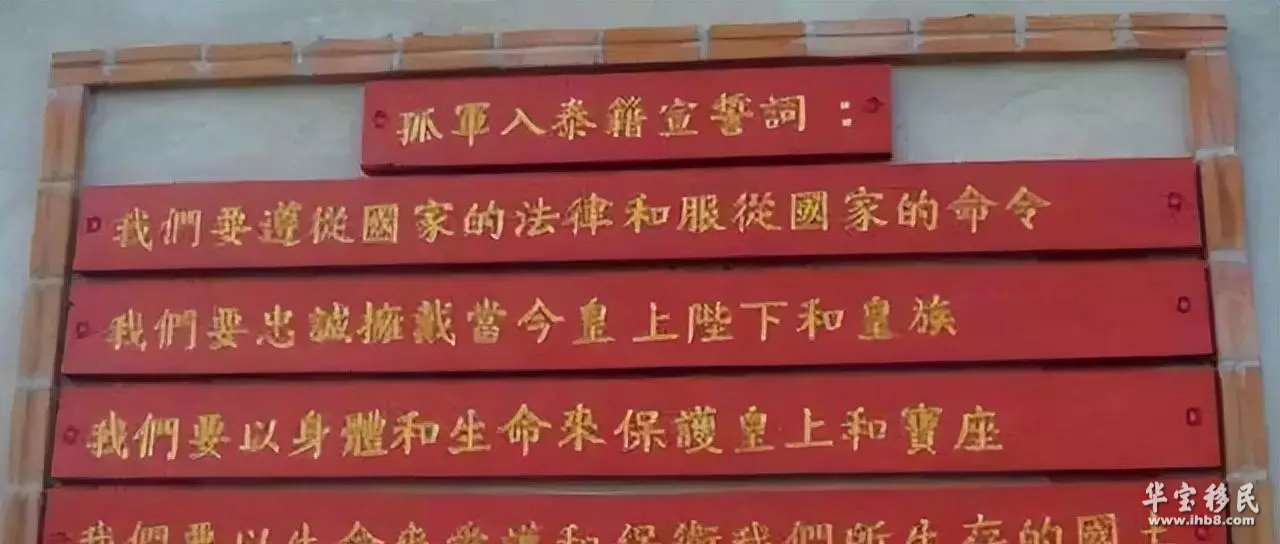 孤軍入泰籍宣誓詞：
我們要遵從國家的法律和服從國家的命令
我們要忠誠擁戴當今皇上陛下和皇族
我們要以身體和生命來保護皇上和寶座
我們要以生命來愛護和保衛我們所生存的國土
华宝移民
www.ihb8.com